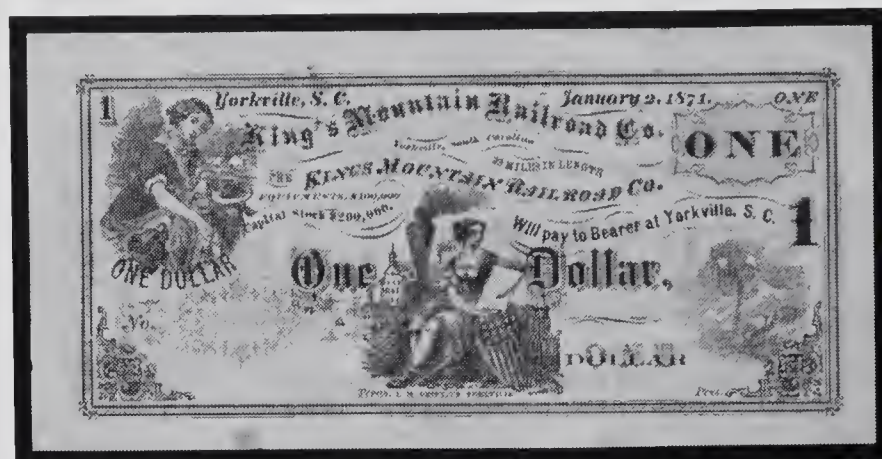 1 Yorkville, S. C. January 2, 1871. ONE
King's Mountain Railroad Co.
ONE
Yorkville, South Carolina
THE KINGS MOUNTAIN RAILROAD CO.
MILES IN LENGTH
Capital Stock $200,000.
Will pay to Bearer at Yorkville, S. C.
1
ONE DOLLAR
One Dollar,
No.
DOLLAR
Pres.